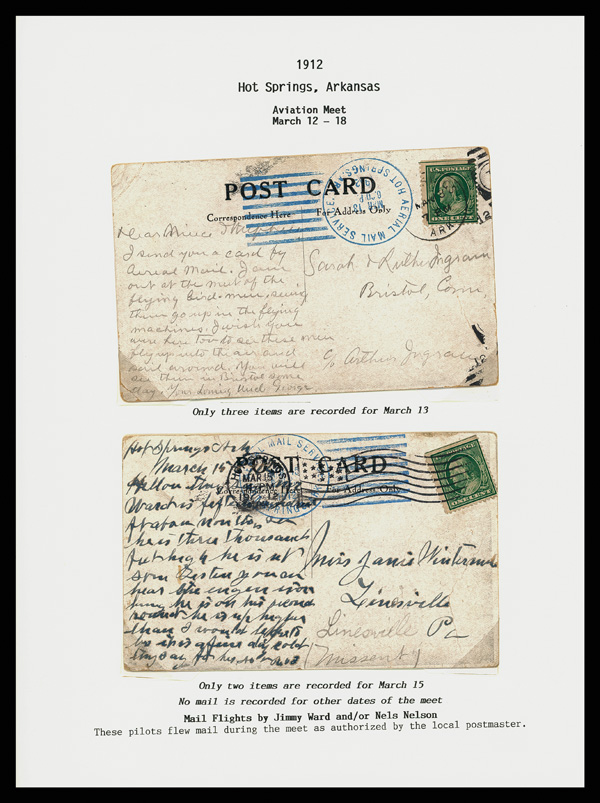 1912
Hot Springs, Arkansas
Aviation Meet
March 12 - 18
POST CARD
Correspondence Here
For Address Only
AERIAL MAIL SERVICE
HOT SPRINGS
MAR 13
U.S. POSTAGE
ONE CENT
ARK.
Dear
I send you a card by
Aereal Mail. I am
out at the meet of the
flying bird-men, seing
them go up in the flying
machines. I wish you
were here too to see these men
fly up into the air and
sail around. You will
see them in Bristol some
day. Your loving Uncle George
Sarah & Ruthe Ingram
Bristol, Conn,
c/o Arthur Ingram
Only three items are recorded for March 13
Hot Springs Ark
March 15
POST CARD
Correspondence Here
For Address Only
MAIL SERVICE
MAR 15
ONE CENT
Ward is
he is three thousand
feet high he is not
you can
hear the engen
he is on his second
round he is up higher
than I would
this is a fine day
Miss Janie
Linesville
Pa
Linesville
Missouri
Only two items are recorded for March 15
No mail is recorded for other dates of the meet
Mail Flights by Jimmy Ward and/or Nels Nelson
These pilots flew mail during the meet as authorized by the local postmaster.